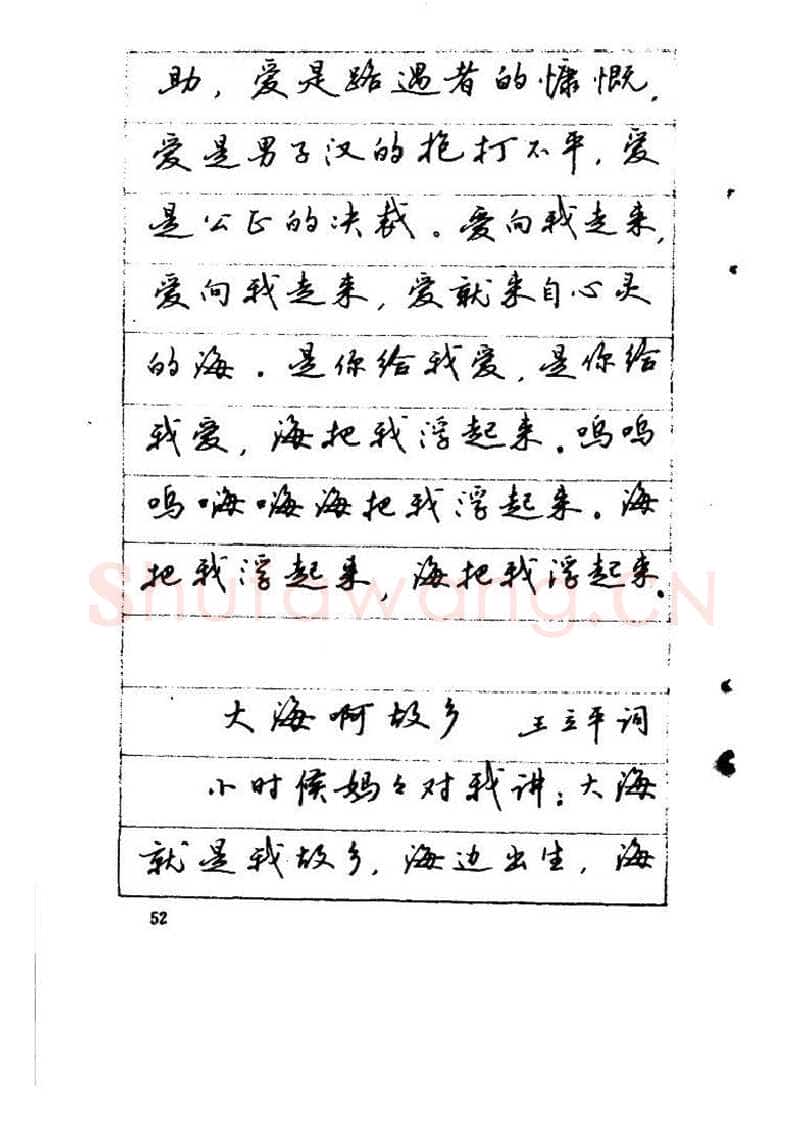 助，爱是路遇者的慷慨，
爱是男子汉的抱打不平，爱
是公正的决裁。爱向我走来，
爱向我走来，爱就来自心灵
的海。是你给我爱，是你给
我爱，海把我浮起来。呜呜
呜嗨嗨海把我浮起来。海
把我浮起来，海把我浮起来。
Shufawang.CN
大海啊故乡 王立平词
小时候妈々对我讲：大海
就是我故乡，海边出生，海
52